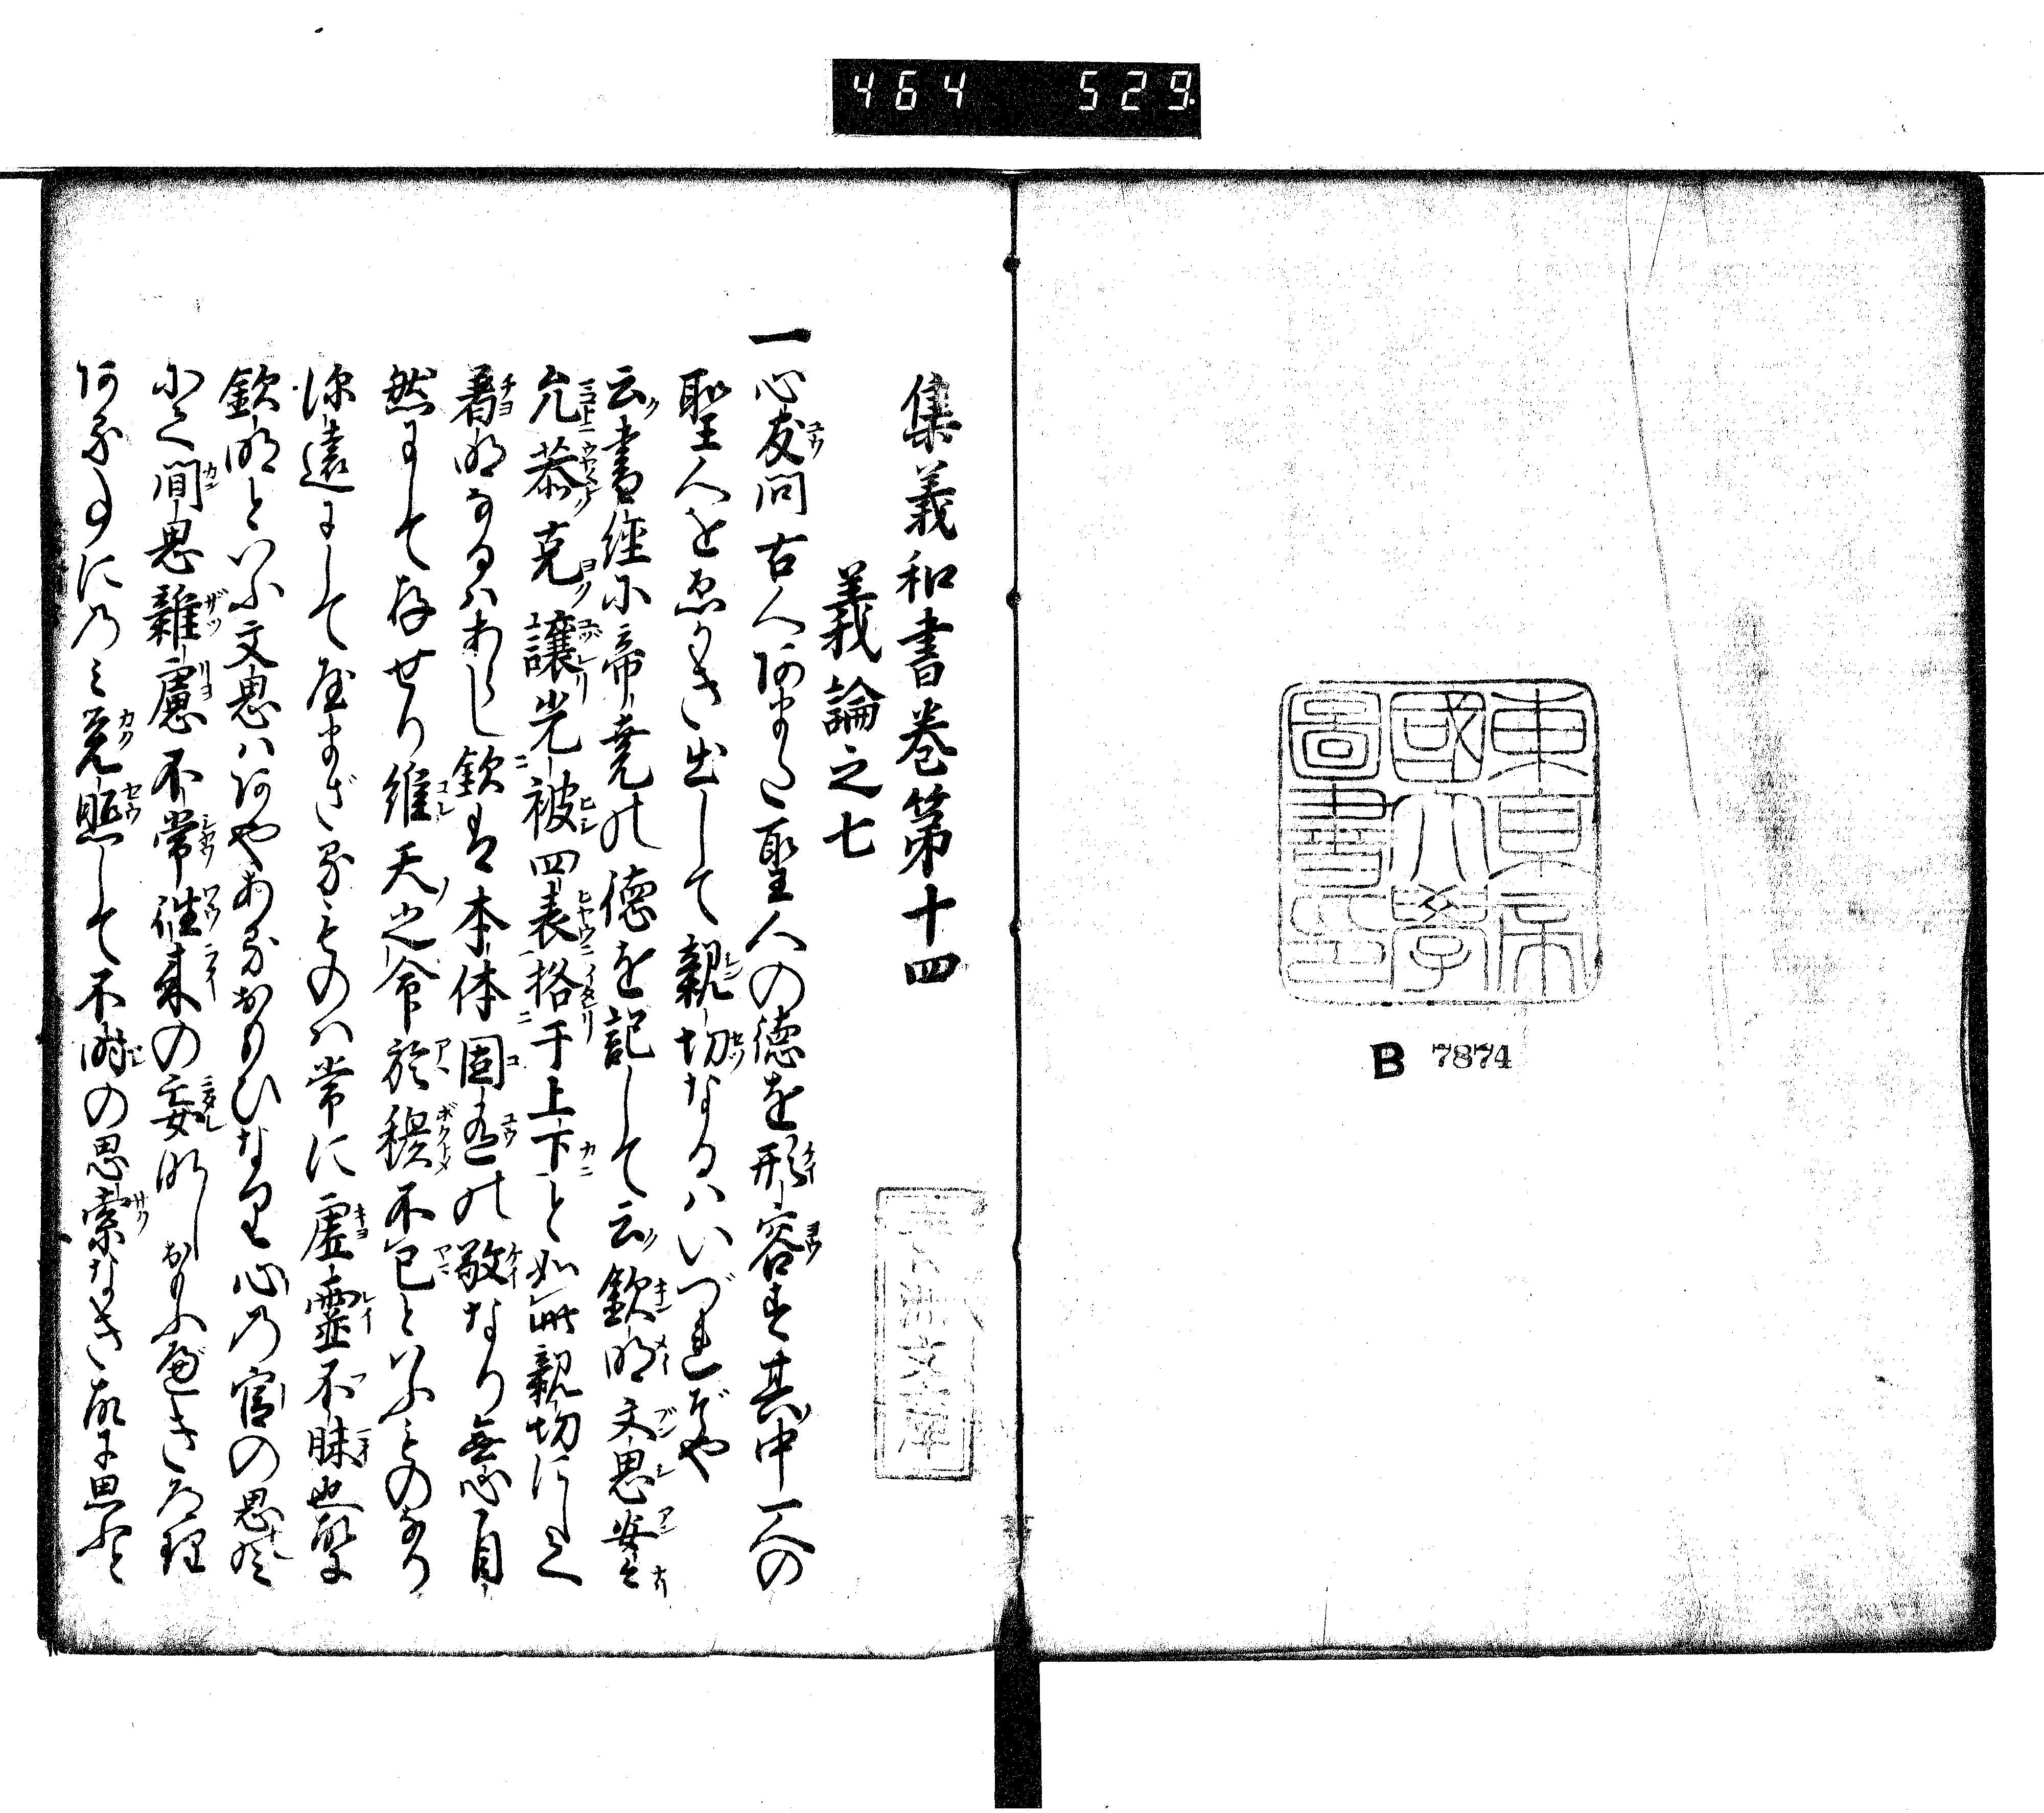 464 529
東京帝
國大學
圖書印
B 7874
集義和書巻第十四
義論之七
一心友問古人阿また聖人の徳を形容す其中一の
聖人をゑかき出して親切なるハいづれぞや
云書経に帝堯の徳を記して云欽明文思安安
允恭克譲光被四表格于上下と如此親切にして
著明なるハあらし欽は本体固有の敬なり無息自
然にして存せり維天之命於穆不已といふものなり
深遠にして
ものハ常に虚霊不昧也
欽明といふ文思ハ阿やあるおもひなり心乃官の思
にて間思雑慮不常往来の妄
おもふべき道理
阿る事にのミ覚照して不時の思索なき故に思と